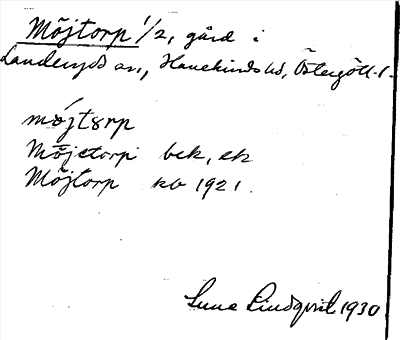 Möjtorp 1/2, gård i
Landeryds sn, Hanekinds hd, Östergötl. l.
möjtɜrp
Möjetorp bek, ek
Möjtorp kb 1921.
Sune Lindqvist 1930